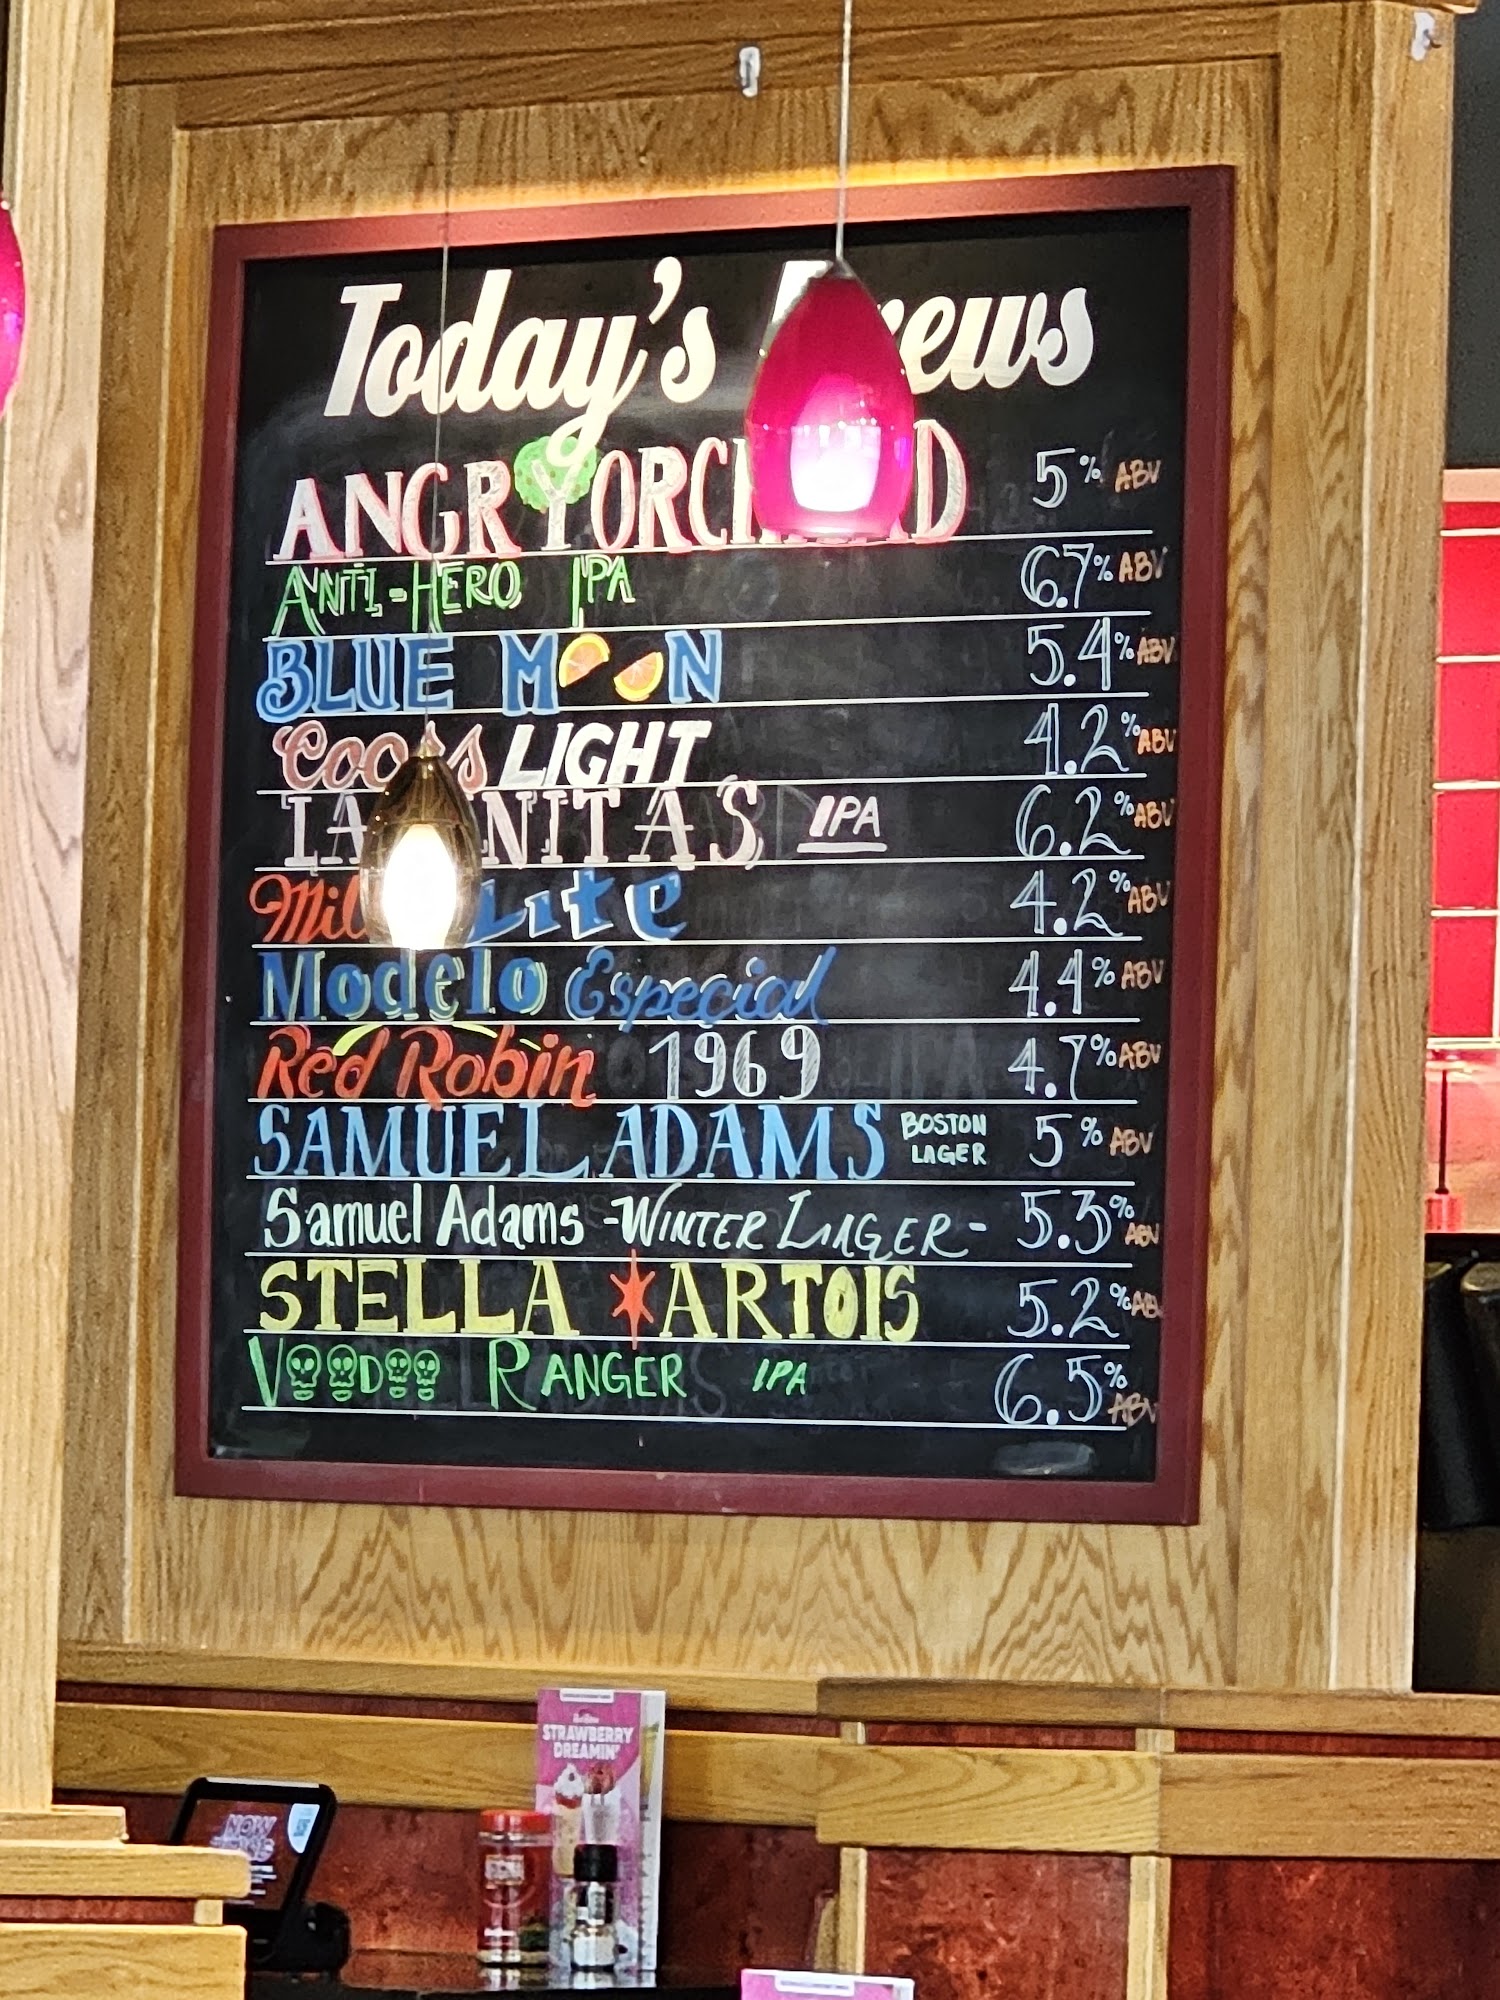 Today's Brews
ANGRY ORCHARD 5% ABV
ANTI-HERO IPA 6.7% ABV
BLUE MOON 5.4% ABV
Coors LIGHT 4.2% ABV
LAGUNITAS IPA 6.2% ABV
Miller Lite 4.2% ABV
Modelo Especial 4.4% ABV
Red Robin 1969 4.7% ABV
SAMUEL ADAMS BOSTON LAGER 5% ABV
Samuel Adams -WINTER LAGER- 5.3% ABV
STELLA ARTOIS 5.2% ABV
VOODOO RANGER IPA 6.5% ABV
STRAWBERRY
DREAMIN'
NOW